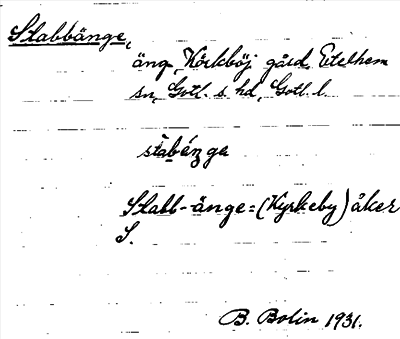 Stabbänge,
äng, Körkböj gård Etelhem
sn, Gotl. s. hd, Gotl. l.
stabénge
Stabb-änge = (Kyrkeby) åker
S.
B. Bolin 1931.